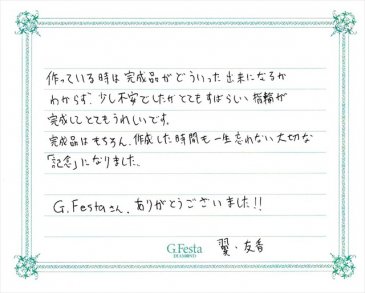 作っている時は完成品がどういった出来になるか
わからず、少し不安でしたがとてもすばらしい指輪が
完成してとてもうれしいです。
完成品はもちろん、作成した時間も一生忘れない大切な
「記念」になりました。
G.Festaさん、ありがとうございました!!
G.Festa
DIAMOND
翼・友香